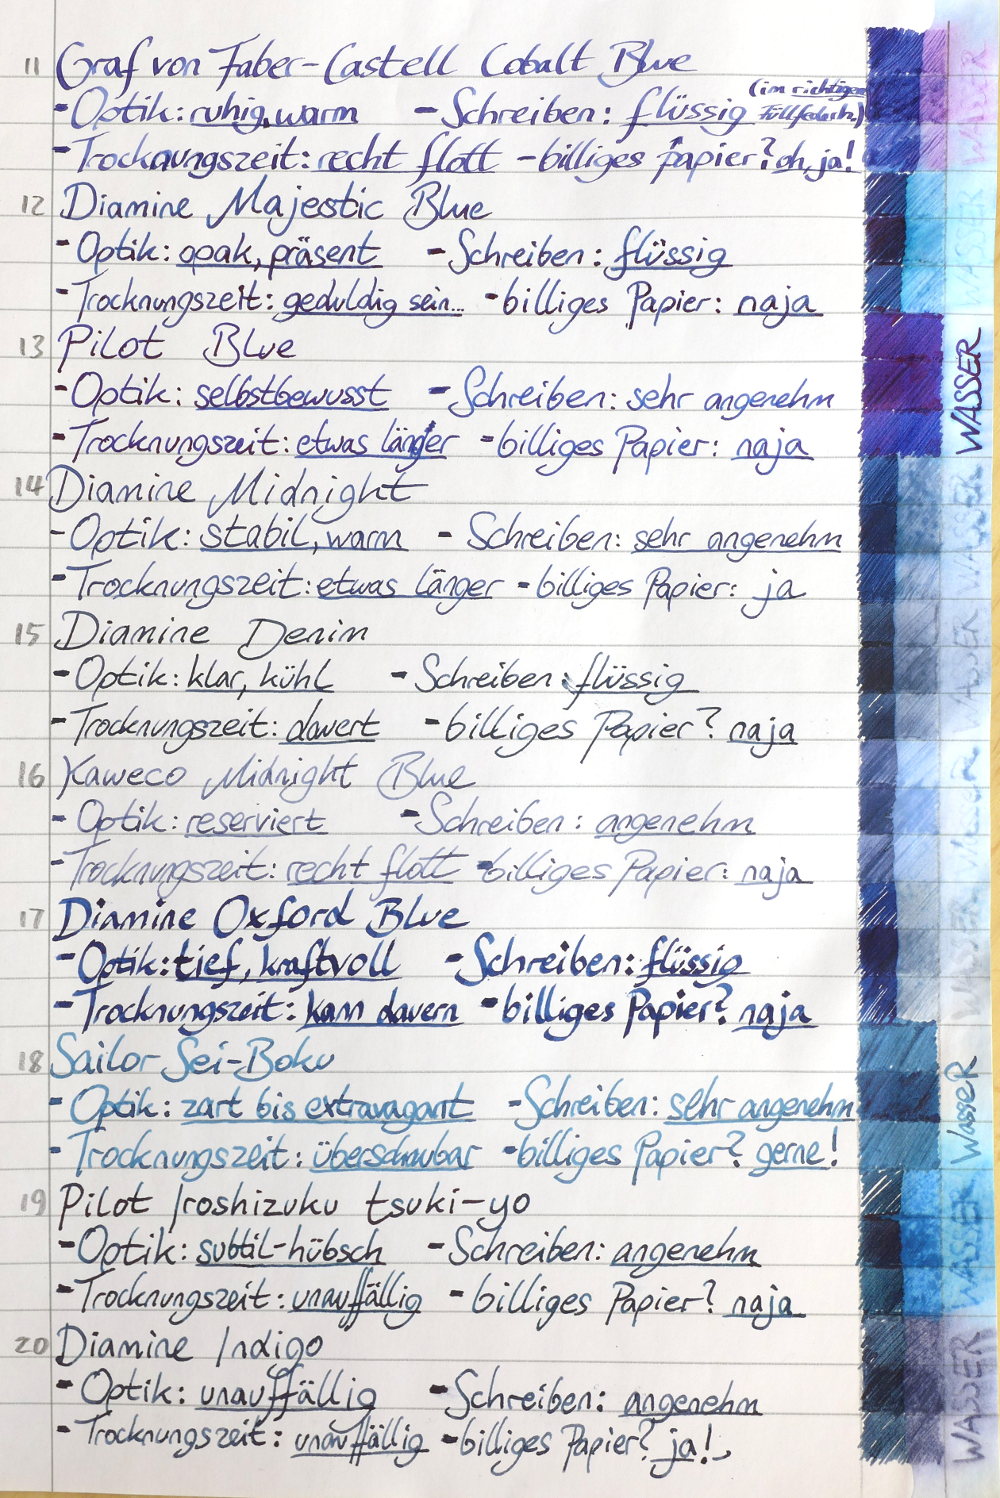 11 Graf von Faber-Castell Cobalt Blue
- Optik: ruhig, warm - Schreiben: flüssig (im richtigen Füllfederh.)
- Trocknungszeit: recht flott - billiges Papier? oh, ja!
12 Diamine Majestic Blue
- Optik: opak, präsent - Schreiben: flüssig
- Trocknungszeit: geduldig sein... - billiges Papier: naja
13 Pilot Blue
- Optik: selbstbewusst - Schreiben: sehr angenehm
- Trocknungszeit: etwas länger - billiges Papier: naja
14 Diamine Midnight
- Optik: stabil, warm - Schreiben: sehr angenehm
- Trocknungszeit: etwas länger - billiges Papier: ja
15 Diamine Denim
- Optik: klar, kühl - Schreiben: flüssig
- Trocknungszeit: dauert - billiges Papier? naja
16 Kaweco Midnight Blue
- Optik: reserviert - Schreiben: angenehm
- Trocknungszeit: recht flott - billiges Papier: naja
17 Diamine Oxford Blue
- Optik: tief, kraftvoll - Schreiben: flüssig
- Trocknungszeit: kann dauern - billiges Papier? naja
18 Sailor Sei-Boku
- Optik: zart bis extravagant - Schreiben: sehr angenehm
- Trocknungszeit: überschaubar - billiges Papier? gerne!
19 Pilot Iroshizuku tsuki-yo
- Optik: subtil-hübsch - Schreiben: angenehm
- Trocknungszeit: unauffällig - billiges Papier? naja
20 Diamine Indigo
- Optik: unauffällig - Schreiben: angenehm
- Trocknungszeit: unauffällig - billiges Papier? ja!
WASSER
WASSER
WASSER
WASSER
WASSER
WASSER
WASSER
WASSER
WASSER
WASSER